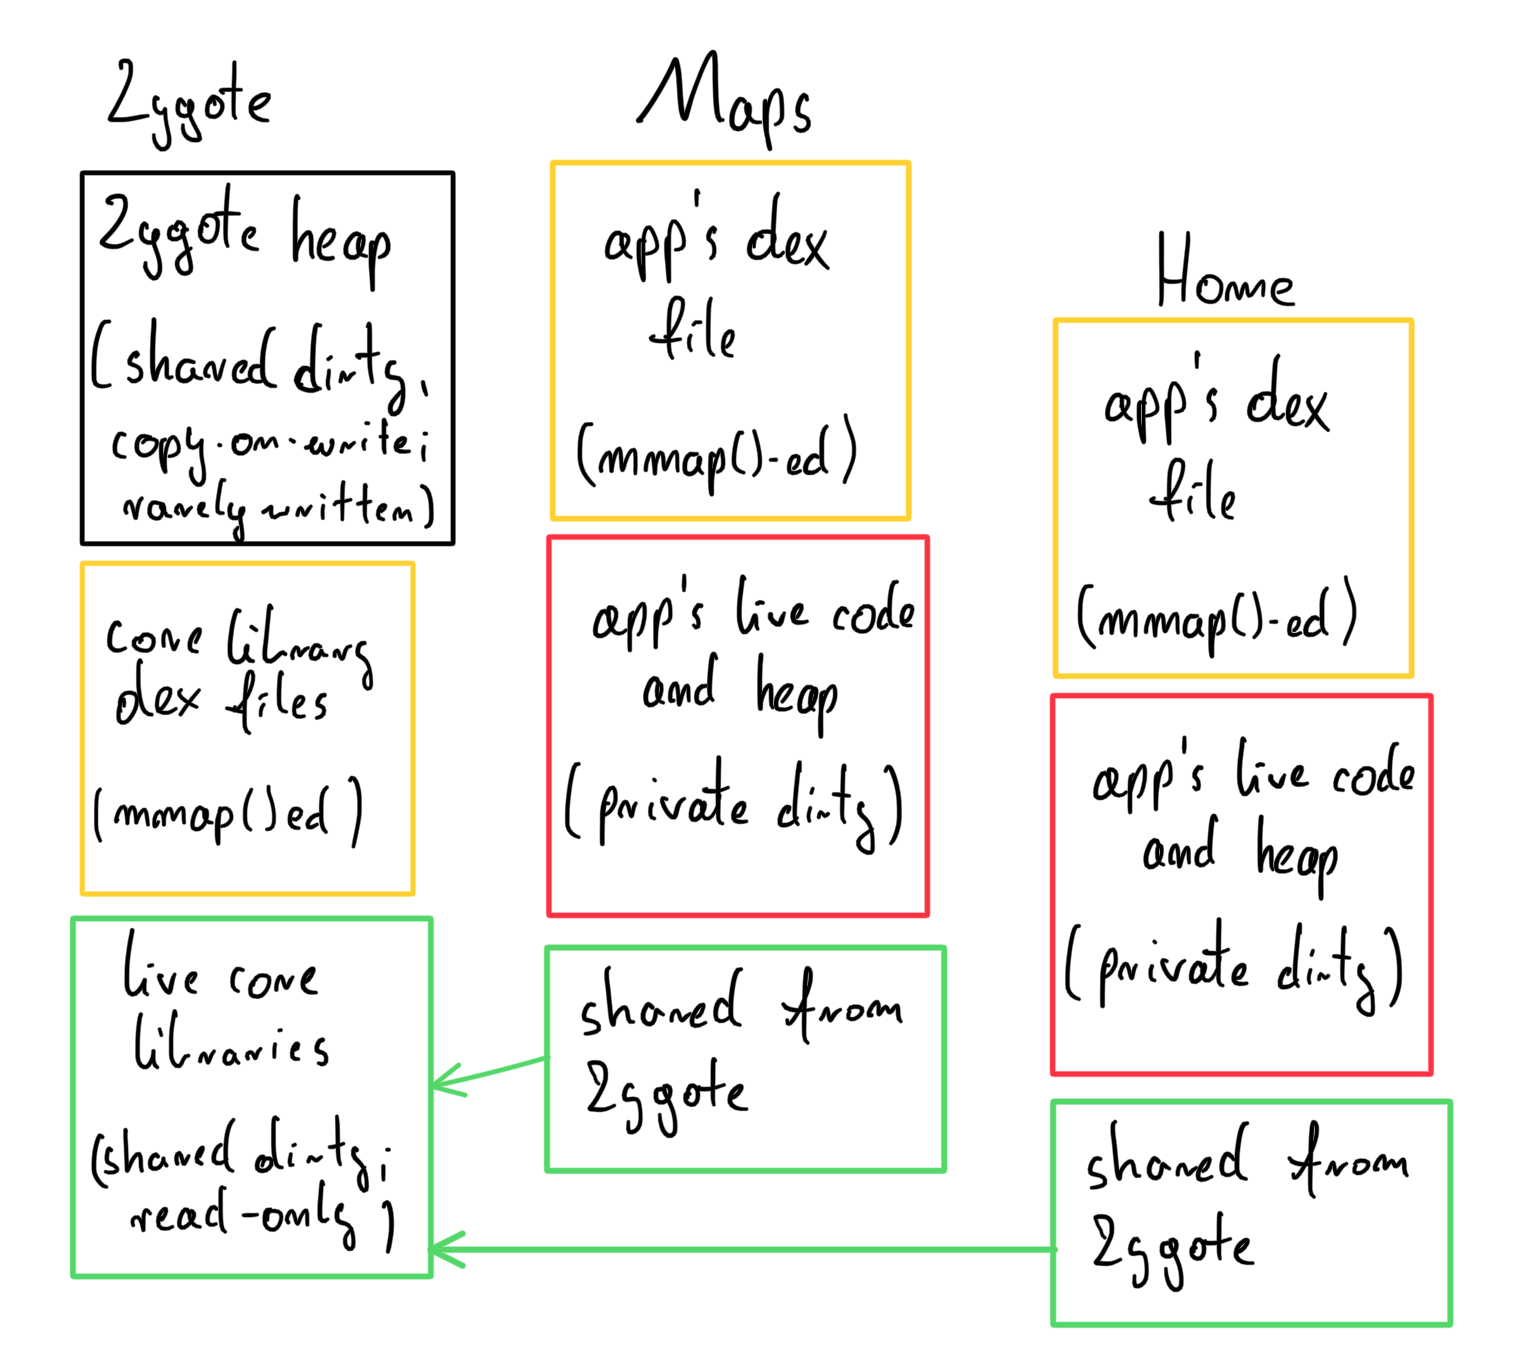 Zygote
Zygote heap
(shared dirty,
copy-on-write;
rarely written)
core library
dex files
(mmap()ed)
live core
libraries
(shared dirty;
read-only)
Maps
app's dex
file
(mmap()-ed)
app's live code
and heap
(private dirty)
shared from
Zygote
Home
app's dex
file
(mmap()-ed)
app's live code
and heap
(private dirty)
shared from
Zygote